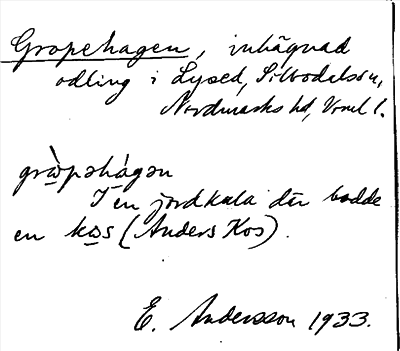 Gropehagen, inhägnad
odling i Lysed, Silbodals sn,
Nordmarks hd, Vrml l.
grɷ̀pəhágən
I en jordkula där bodde
en kɷs (Anders Kos).
E. Andersson 1933.